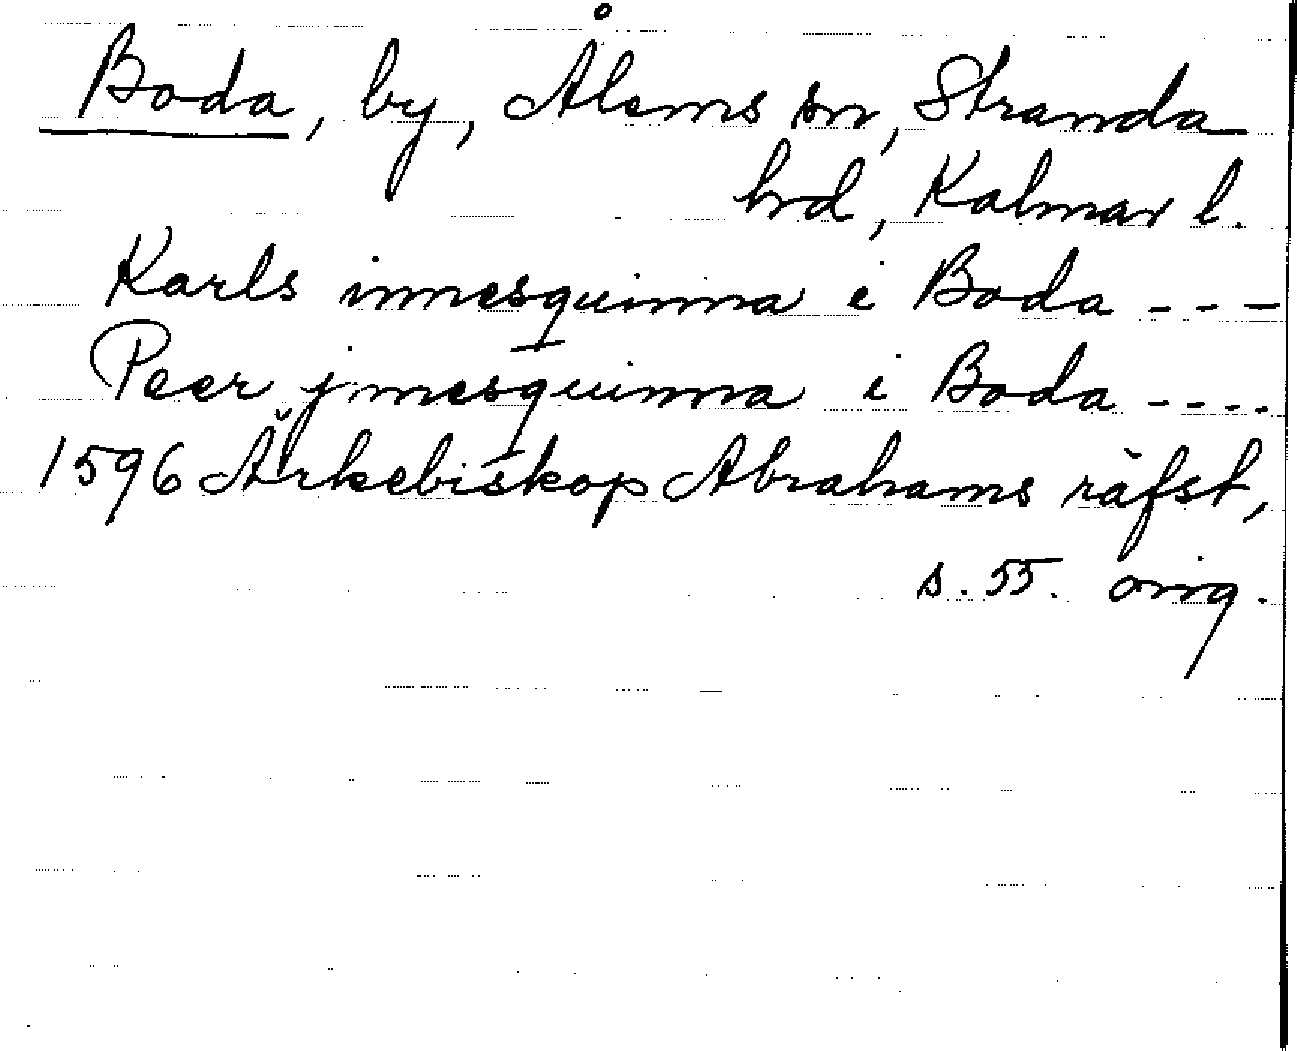 Boda, by, Ålems sn, Stranda
hrd, Kalmar l.
Karls innesquinna i Boda - - -
Peer jnnesquinna i Boda - - - -
1596 Ärkebiskop Abrahams räfst,
s. 55. orig.